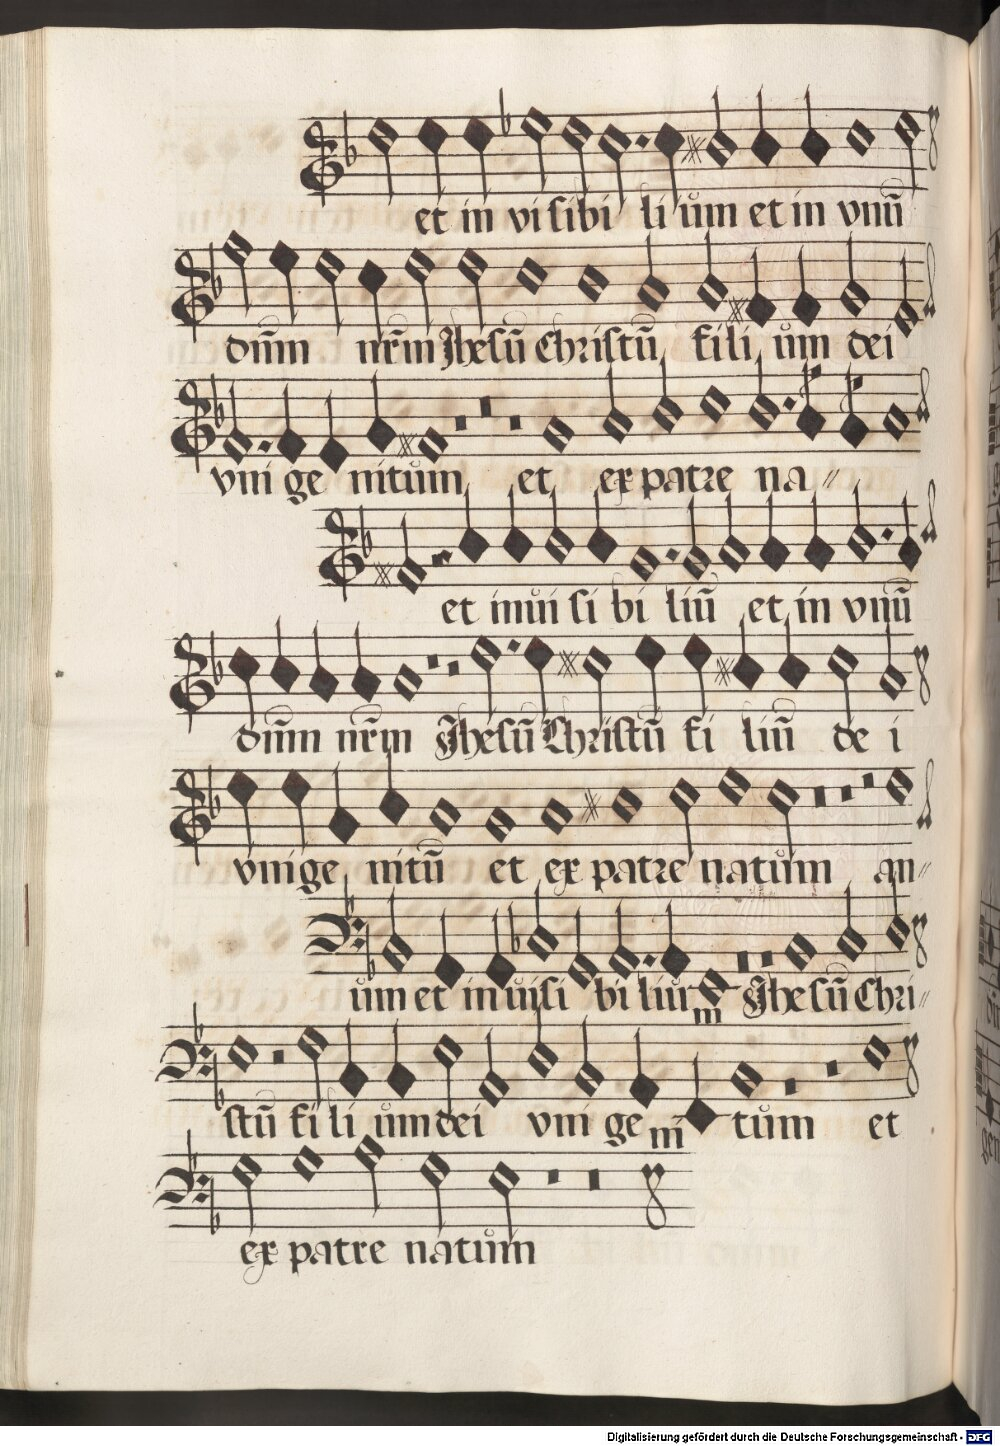 et in vi sibi li um et in vnu̅
dn̅m nr̅m Jhesu̅ Christu̅ fili um dei
vni ge nitum et ex patre na //
et inui si bi liu̅ et in vnu̅
dn̅m nr̅m Jhesu̅ Christu̅ fi liu̅ de i
vnige nitu̅ et ex patre natum an //
um et in uisi bi liu m Jhe su̅ Chri //
stu̅ fi li um dei vni ge ni tum et
ex patre natum
Digitalisierung gefördert durch die Deutsche Forschungsgemeinschaft - DFG